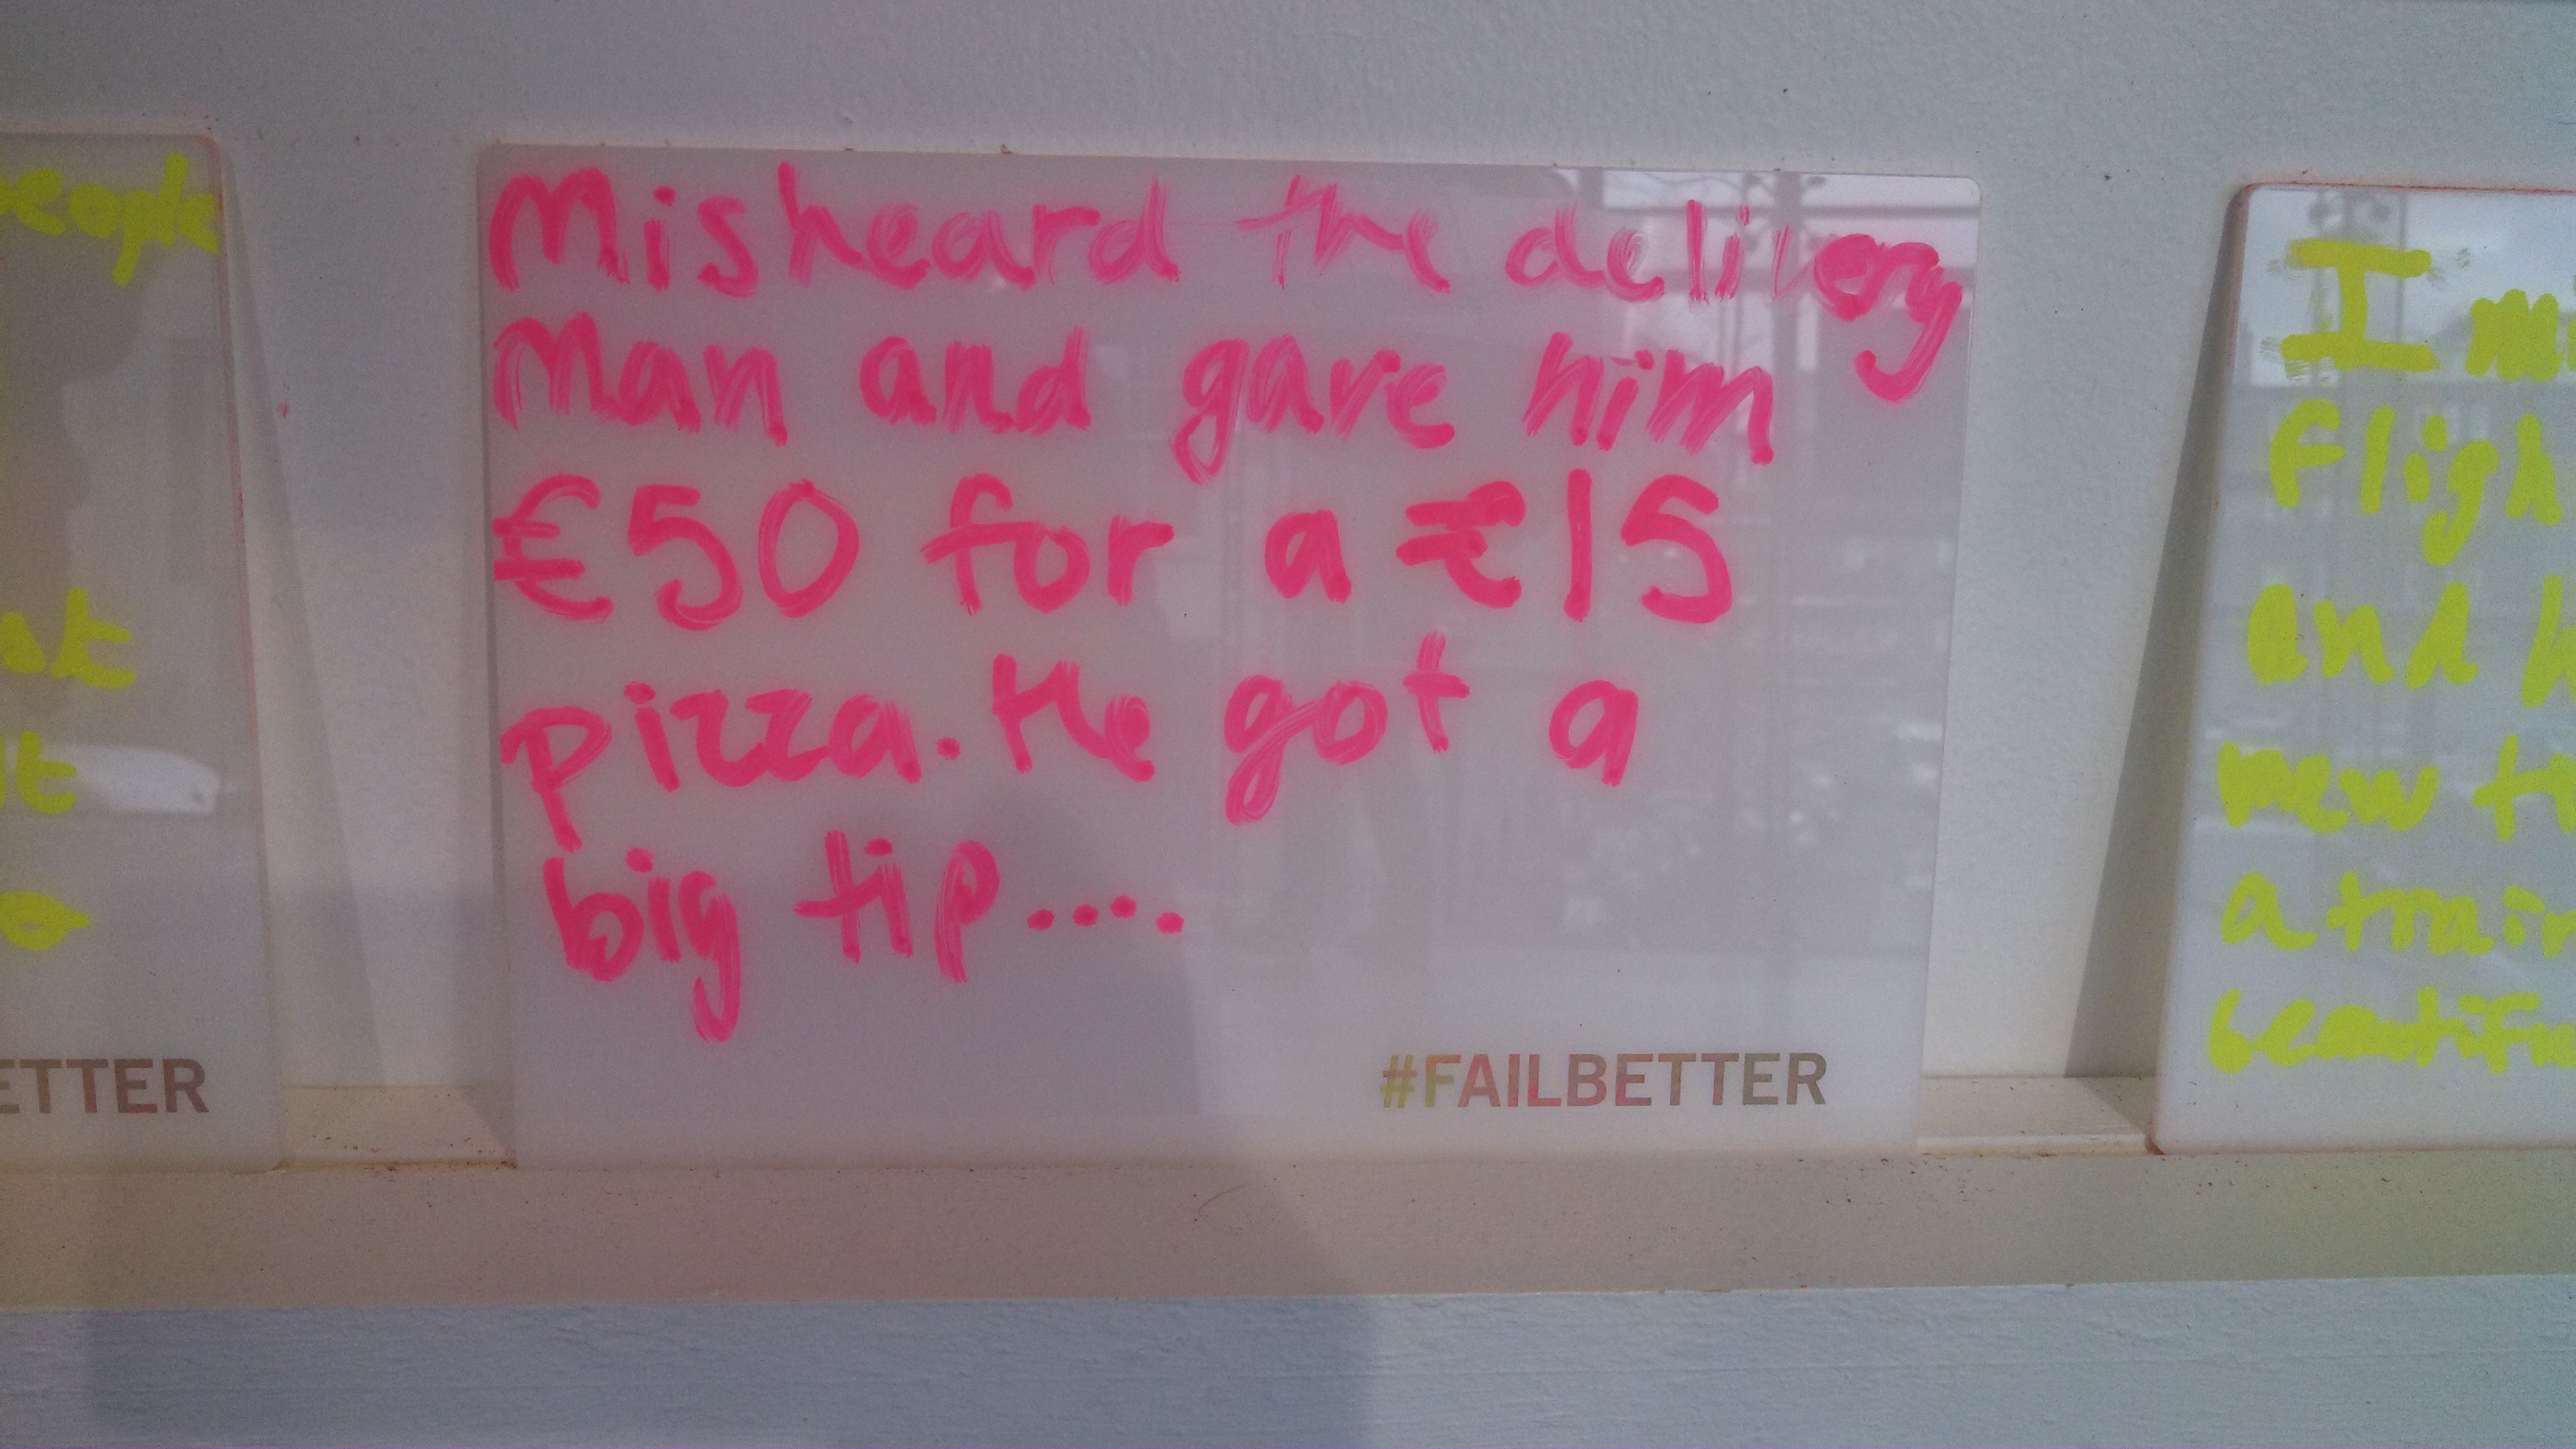 Misheard the delivery
Man and gave him
€50 for a €15
pizza. He got a
big tip....
#FAILBETTER
people
ETTER
I
Fligh
and
new
a train
beautifu